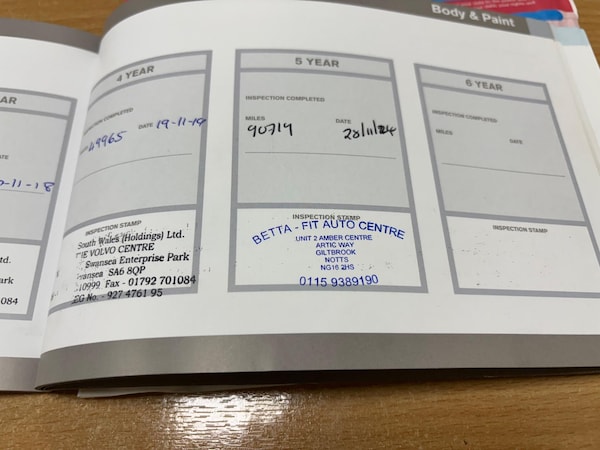 Body & Paint
AR
ATE
-11-18
td.
Park
1084
4 YEAR
INSPECTION COMPLETED
49965
DATE 19-11-19
INSPECTION STAMP
South Wales (Holdings) Ltd.
VOLVO CENTRE
Swansea Enterprise Park
Swansea SA6 8QP
10999 Fax - 01792 701084
REG No. - 927 4761 95
5 YEAR
INSPECTION COMPLETED
MILES
DATE
90719
28/11/24
INSPECTION STAMP
BETTA - FIT AUTO CENTRE
UNIT 2 AMBER CENTRE
ARTIC WAY
GILTBROOK
NOTTS
NG16 2HS
0115 9389190
6 YEAR
INSPECTION COMPLETED
MILES
DATE
INSPECTION STAMP